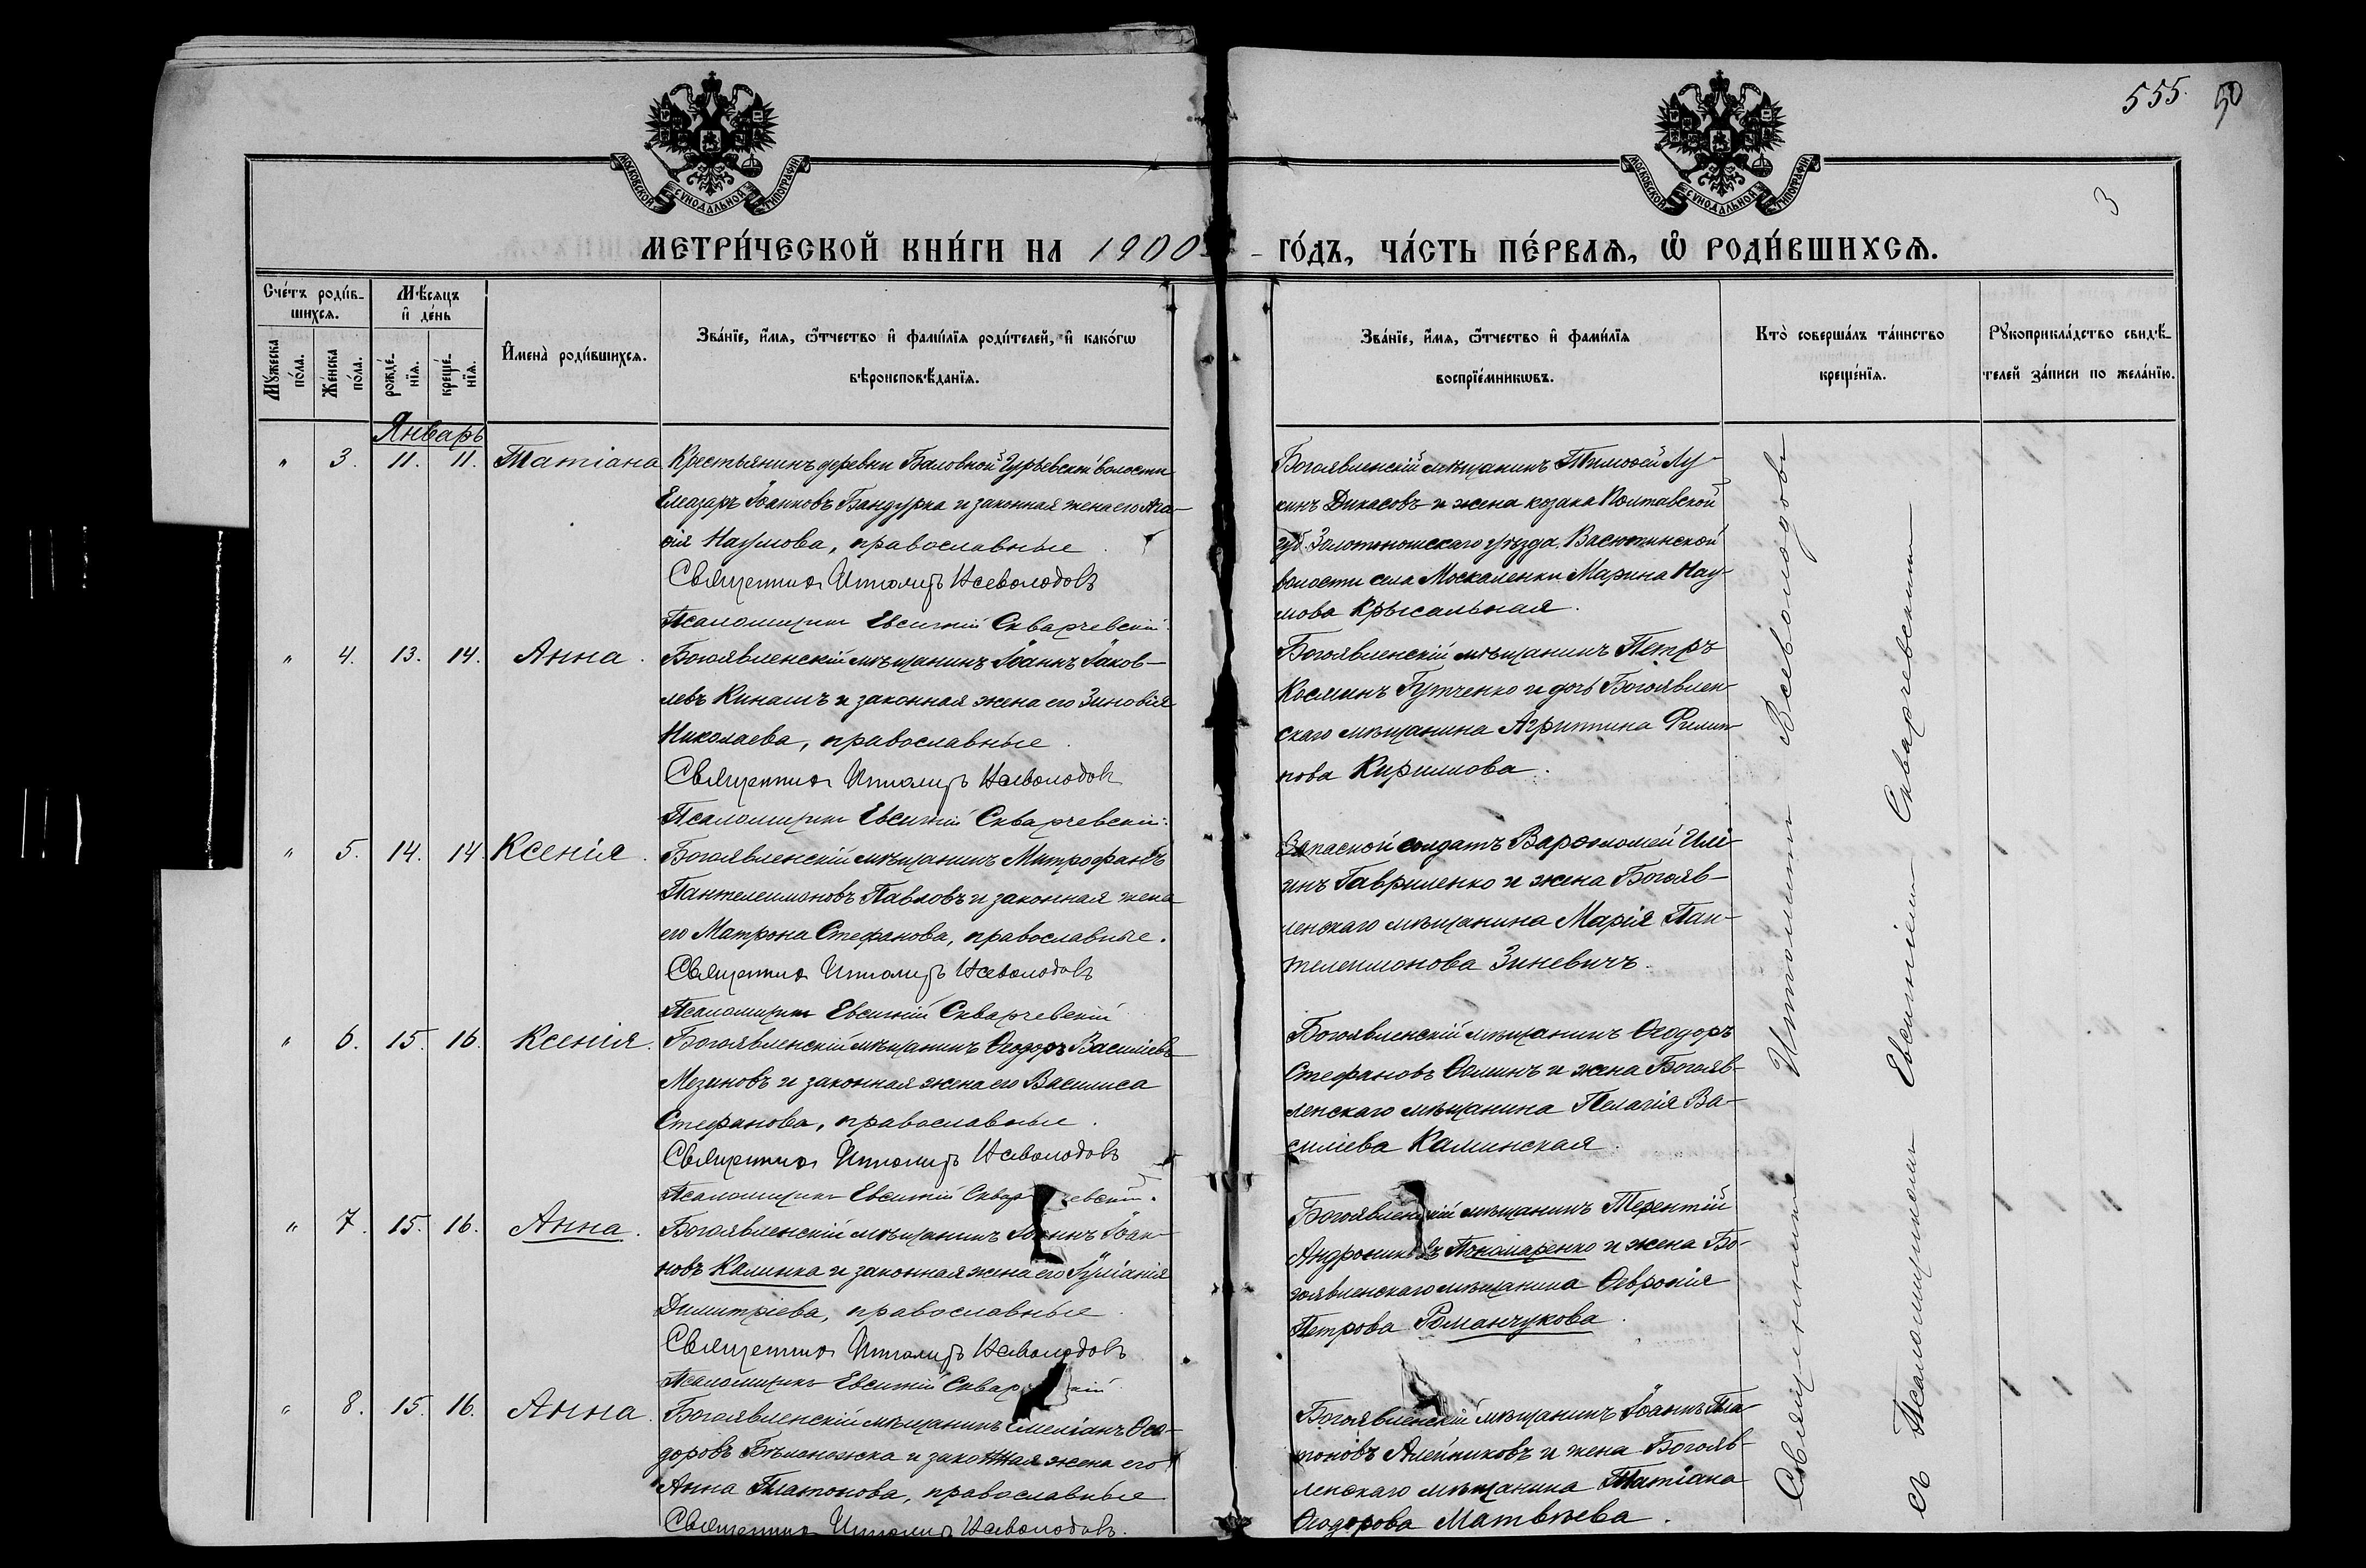 555. 50
3
МОСКОВСКОЙ СѴНОДАЛЬНОЙ ТИПОГРАФІИ
МОСКОВСКОЙ СѴНОДАЛЬНОЙ ТИПОГРАФІИ
МЕТРИ́ЧЕСКОЙ КНИ́ГИ НА 1900 ГО́ДЪ, ЧА́СТЬ ПЕ́РВАѦ, Ѡ҆ РОДИ́ВШИХСѦ.
Сче́тъ роди́в-
шихсѧ.
Мꙋ́жеска
по́ла.
Же́нска
по́ла.
Мѣ́сѧцъ
и҆ де́нь
рожде́-
нїѧ.
креще́-
нїѧ.
И҆мена̀ роди́вшихсѧ.
Зва́нїе, и҆́мѧ, ѻ҆́тчество и҆ фами́лїѧ роди́телей, и҆ како́гѡ
вѣроисповѣ́данїѧ.
Зва́нїе, и҆́мѧ, ѻ҆́тчество и҆ фами́лїѧ
воспрїе́мникѡвъ.
Кто̀ соверша́лъ та́инство
креще́нїѧ.
Рꙋкоприкла́дство свидѣ́-
телей за́писи по жела́нїю.
Январь
" 3. 11. 11. Татіана
Крестьянинъ деревни Баловной Гурьевской волости
Елеазаръ Іоанновъ Бандурка и законная жена его Ага-
ѳія Наумова, православные.
Священникъ Ипполитъ Всеволодовъ
Псаломщикъ Евсигній Скварчевскій.
Богоявленскій мѣщанинъ Тимоѳей Лу-
кинъ Дикасовъ и жена козака Полтавской
губ. Золотоношскаго уѣзда, Васютинской
волости села Москаленки Марина Нау-
мова Крысальная.
" 4. 13. 14. Анна.
Богоявленскій мѣщанинъ Іоаннъ Іаков-
левъ Кинашъ и законная жена его Зиновія
Николаева, православные.
Священникъ Ипполитъ Всеволодовъ
Псаломщикъ Евсигній Скварчевскій.
Богоявленскій мѣщанинъ Петръ
Косминъ Гутченко и дочь Богоявлен-
скаго мѣщанина Агриппина Филип-
пова Кириллова.
" 5. 14. 14. Ксенія.
Богоявленскій мѣщанинъ Митрофанъ
Пантелеимоновъ Павловъ и законная жена
его Матрона Стефанова, православные.
Священникъ Ипполитъ Всеволодовъ
Псаломщикъ Евсигній Скварчевскій
Запасной солдатъ Варѳоломей Илі-
инъ Гавриленко и жена Богояв-
ленскаго мѣщанина Марія Пан-
телеимонова Зиневичъ.
" 6. 15. 16. Ксенія.
Богоявленскій мѣщанинъ Ѳеодоръ Василіевъ
Мезиновъ и законная жена его Василиса
Стефанова, православные.
Священникъ Ипполитъ Всеволодовъ
Псаломщикъ Евсигній Сквар евскій.
Богоявленскій мѣщанинъ Ѳеодоръ
Стефановъ Ѳоминъ и жена Богояв-
ленскаго мѣщанина Пелагія Ва-
силіева Каминская.
" 7. 15. 16. Анна.
Богоявленскій мѣщанинъ Іоаннъ Іоан-
новъ Калинка и законная жена его Іуліанія
Димитріева, православные.
Священникъ Ипполитъ Всеволодовъ
Псаломщикъ Евсигній Сквар кій
Богоявленскій мѣщанинъ Терентій
Андрониковъ Пономаренко и жена Бо-
гоявленскаго мѣщанина Ѳевронія
Петрова Романчукова.
" 8. 15. 16. Анна.
Богоявленскій мѣщанинъ Емеліанъ Ѳео-
доровъ Бѣлоножка и законная жена его
Анна Платонова, православные
Священникъ Ипполитъ Всеволодовъ.
Богоявленскій мѣщанинъ Іоаннъ Пла-
тоновъ Алейниковъ и жена Богояв-
ленскаго мѣщанина Татіана
Ѳеодорова Матвѣева.
Священникъ Ипполитъ Всеволодовъ
съ Псаломщикомъ Евсигніемъ Скварчевскимъ